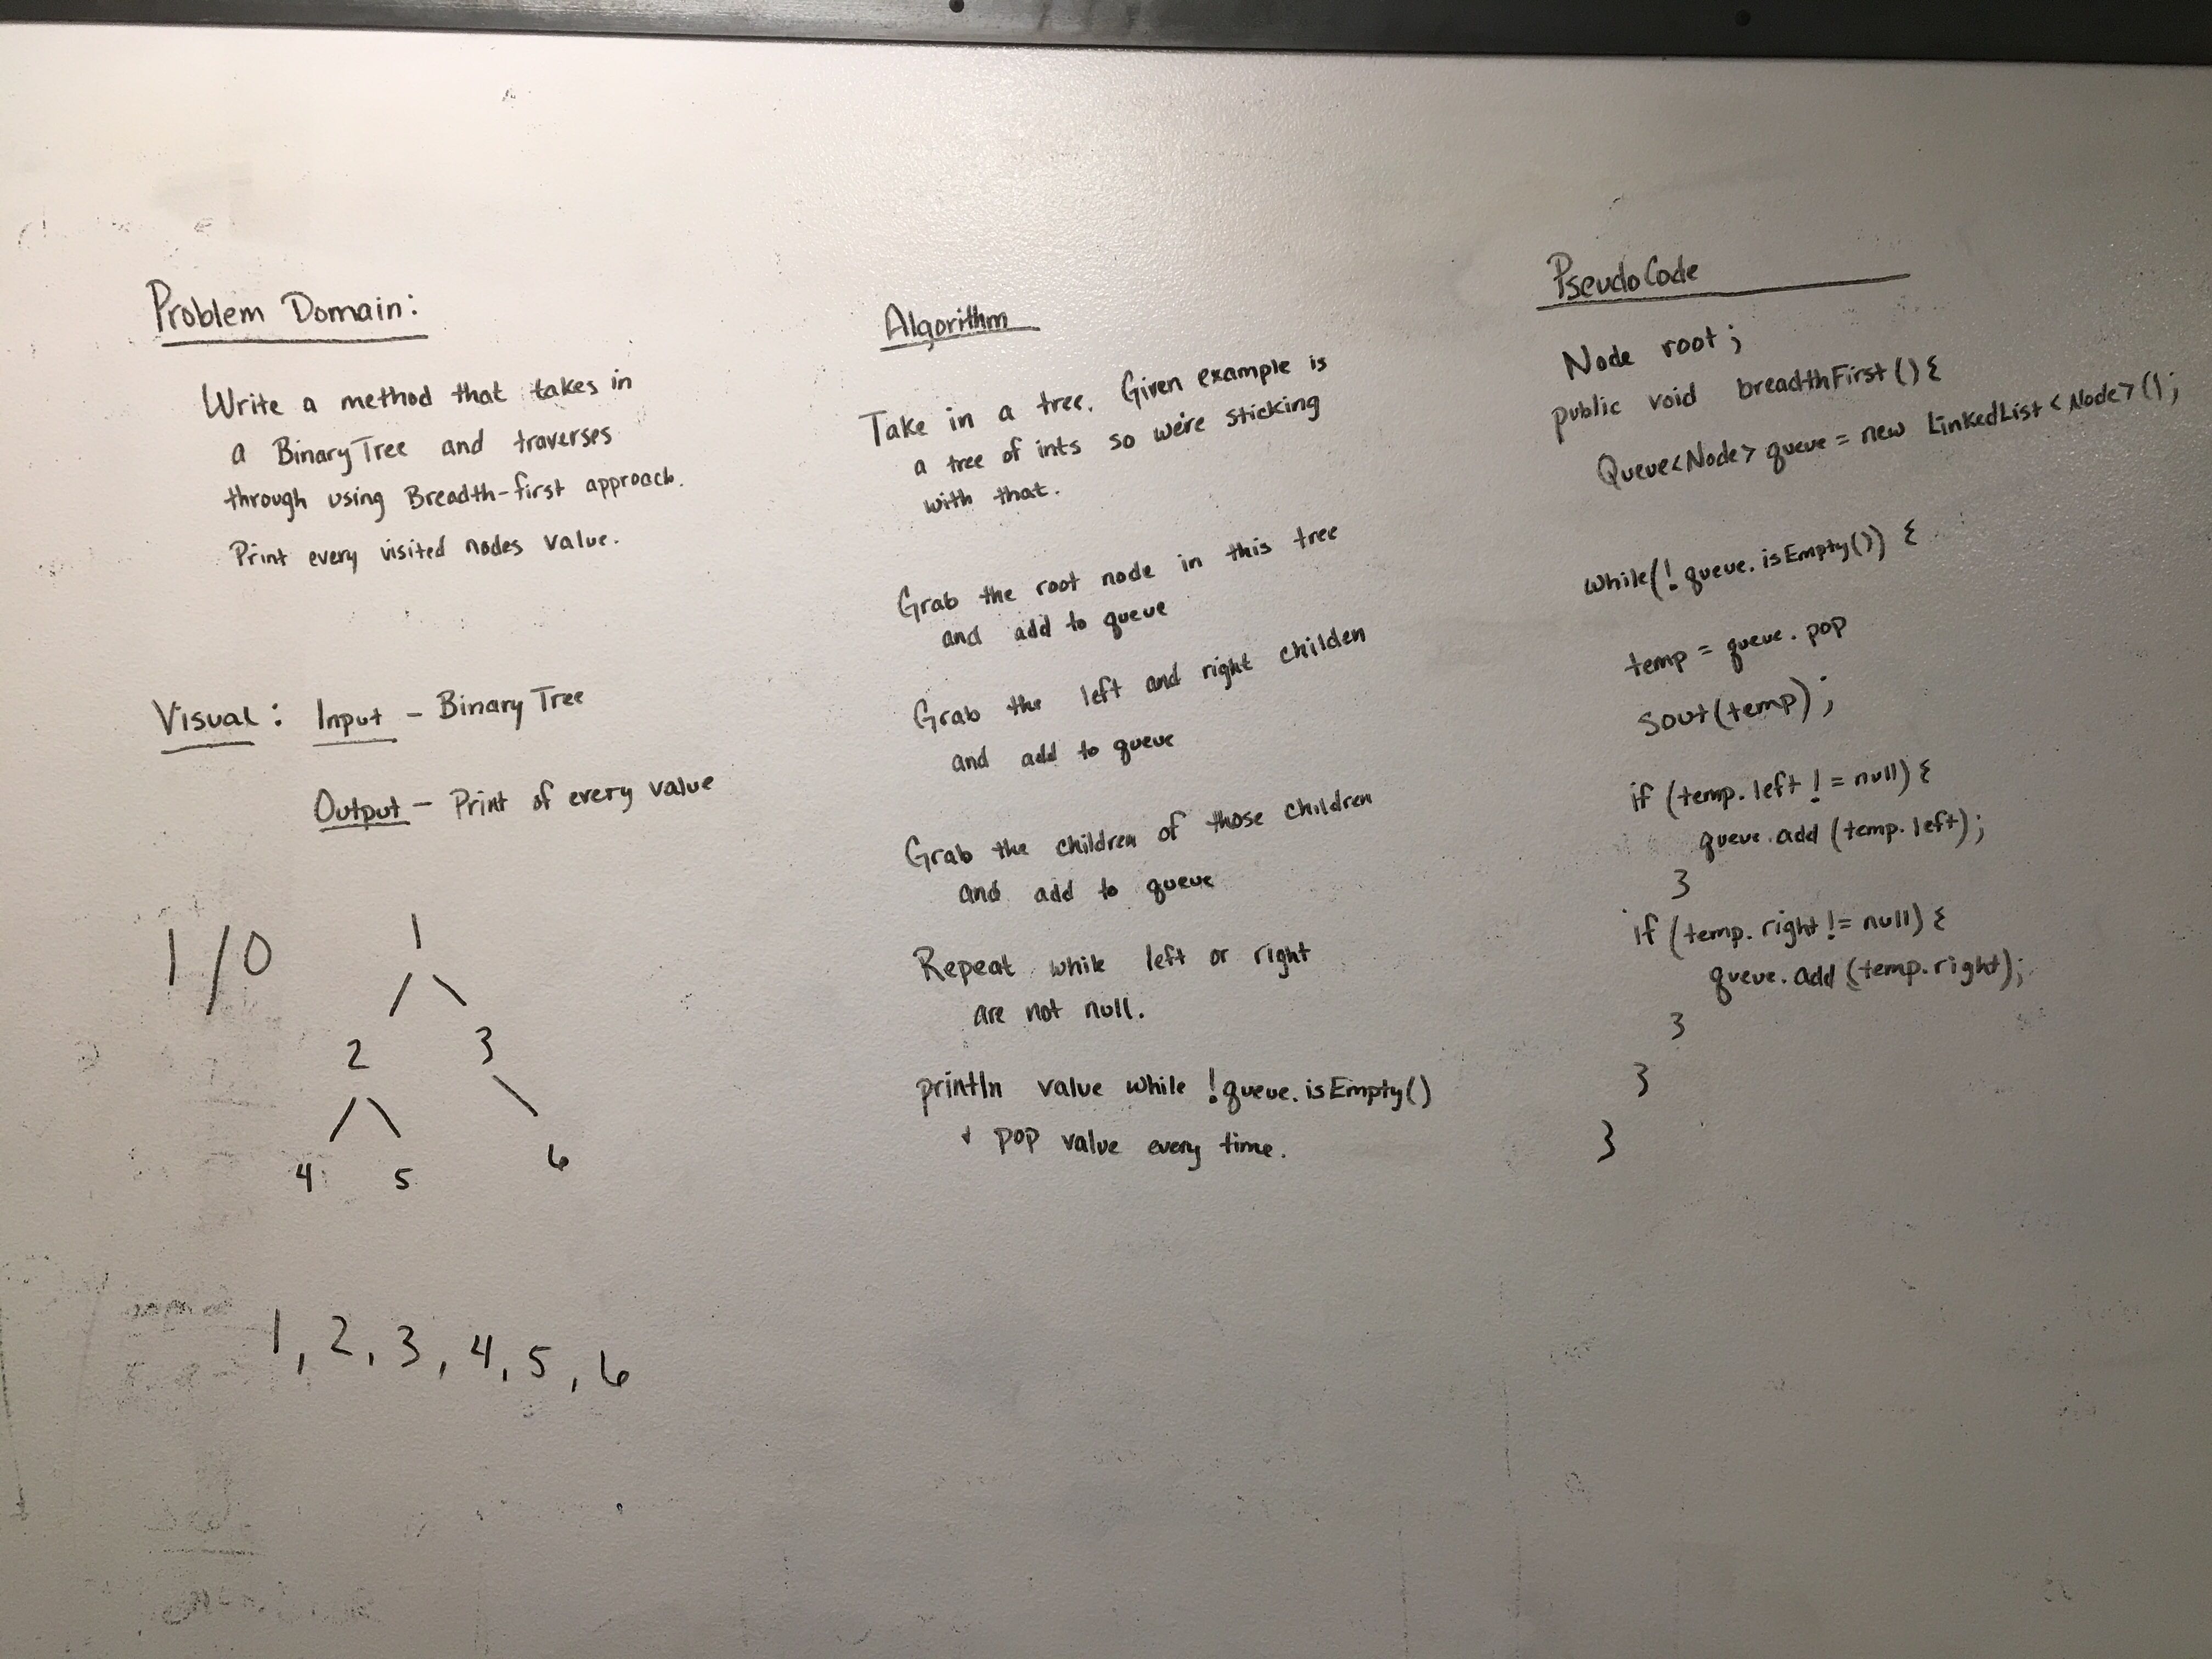 Problem Domain:
Write a method that takes in
a BinaryTree and traverses
through using Breadth-first approach.
Print every visited nodes value.
Visual: Input - Binary Tree
Output - Print of every value
1/0
1
2 3
4 5 6
1, 2, 3, 4, 5, 6
Algorithm
Take in a tree. Given example is
a tree of ints so we're sticking
with that.
Grab the root node in this tree
and add to queue
Grab the left and right childen
and add to queue
Grab the children of those children
and add to queue
Repeat while left or right
are not null.
println value while !queue.isEmpty()
+ pop value every time.
PseudoCode
Node root;
public void breadthFirst(){
Queue<Node> queue = new LinkedList<Node>();
while(!queue.isEmpty()) {
temp = queue.pop
Sout(temp);
if (temp.left != null) {
queue.add (temp.left);
}
if (temp.right != null) {
queue.add (temp.right);
}
}
}